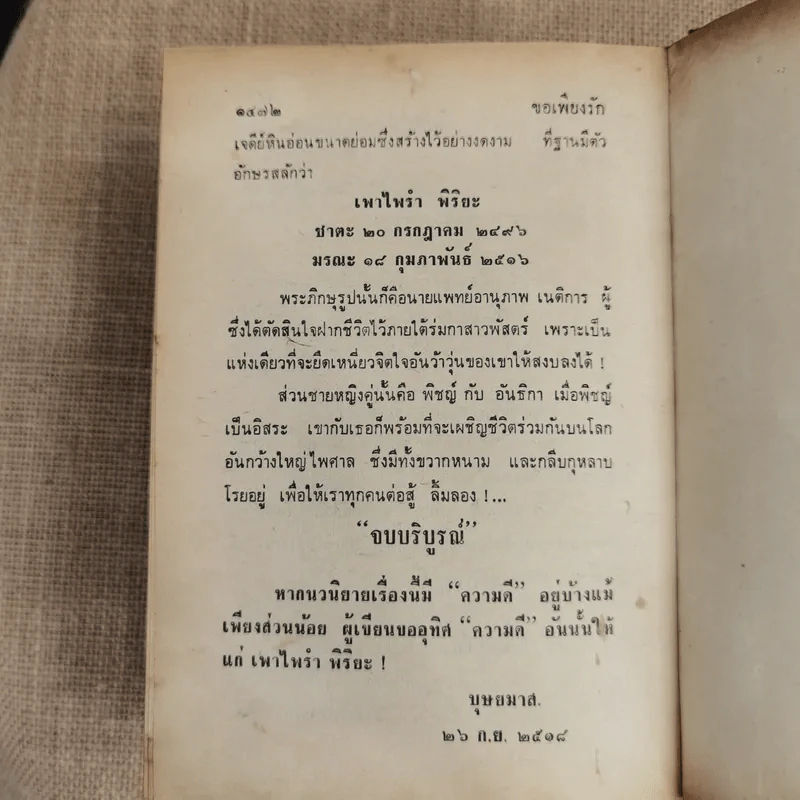 ๑๔๗๒ ขอเพียงรัก
เจดีย์หินอ่อนขนาดย่อมซึ่งสร้างไว้อย่างงดงาม ที่ฐานมีตัว
อักษรสลักว่า
เพาไพรำ พิริยะ
ชาตะ ๒๐ กรกฎาคม ๒๔๙๖
มรณะ ๑๘ กุมภาพันธ์ ๒๕๑๖
พระภิกษุรูปนั้นก็คือนายแพทย์อานุภาพ เนติการ ผู้
ซึ่งได้ตัดสินใจฝากชีวิตไว้ภายใต้ร่มกาสาวพัสตร์ เพราะเป็น
แห่งเดียวที่จะยึดเหนี่ยวจิตใจอันว้าวุ่นของเขาให้สงบลงได้ !
ส่วนชายหญิงคู่นั้นคือ พิชญ์ กับ อันธิกา เมื่อพิชญ์
เป็นอิสระ เขากับเธอก็พร้อมที่จะเผชิญชีวิตร่วมกันบนโลก
อันกว้างใหญ่ไพศาล ซึ่งมีทั้งขวากหนาม และกลีบกุหลาบ
โรยอยู่ เพื่อให้เราทุกคนต่อสู้ ลิ้มลอง !...
“จบบริบูรณ์”
หากนวนิยายเรื่องนี้มี “ความดี” อยู่บ้างแม้
เพียงส่วนน้อย ผู้เขียนขออุทิศ “ความดี” อันนั้นให้
แก่ เพาไพรำ พิริยะ !
บุษยมาส.
๒๖ ก.ย. ๒๕๑๘